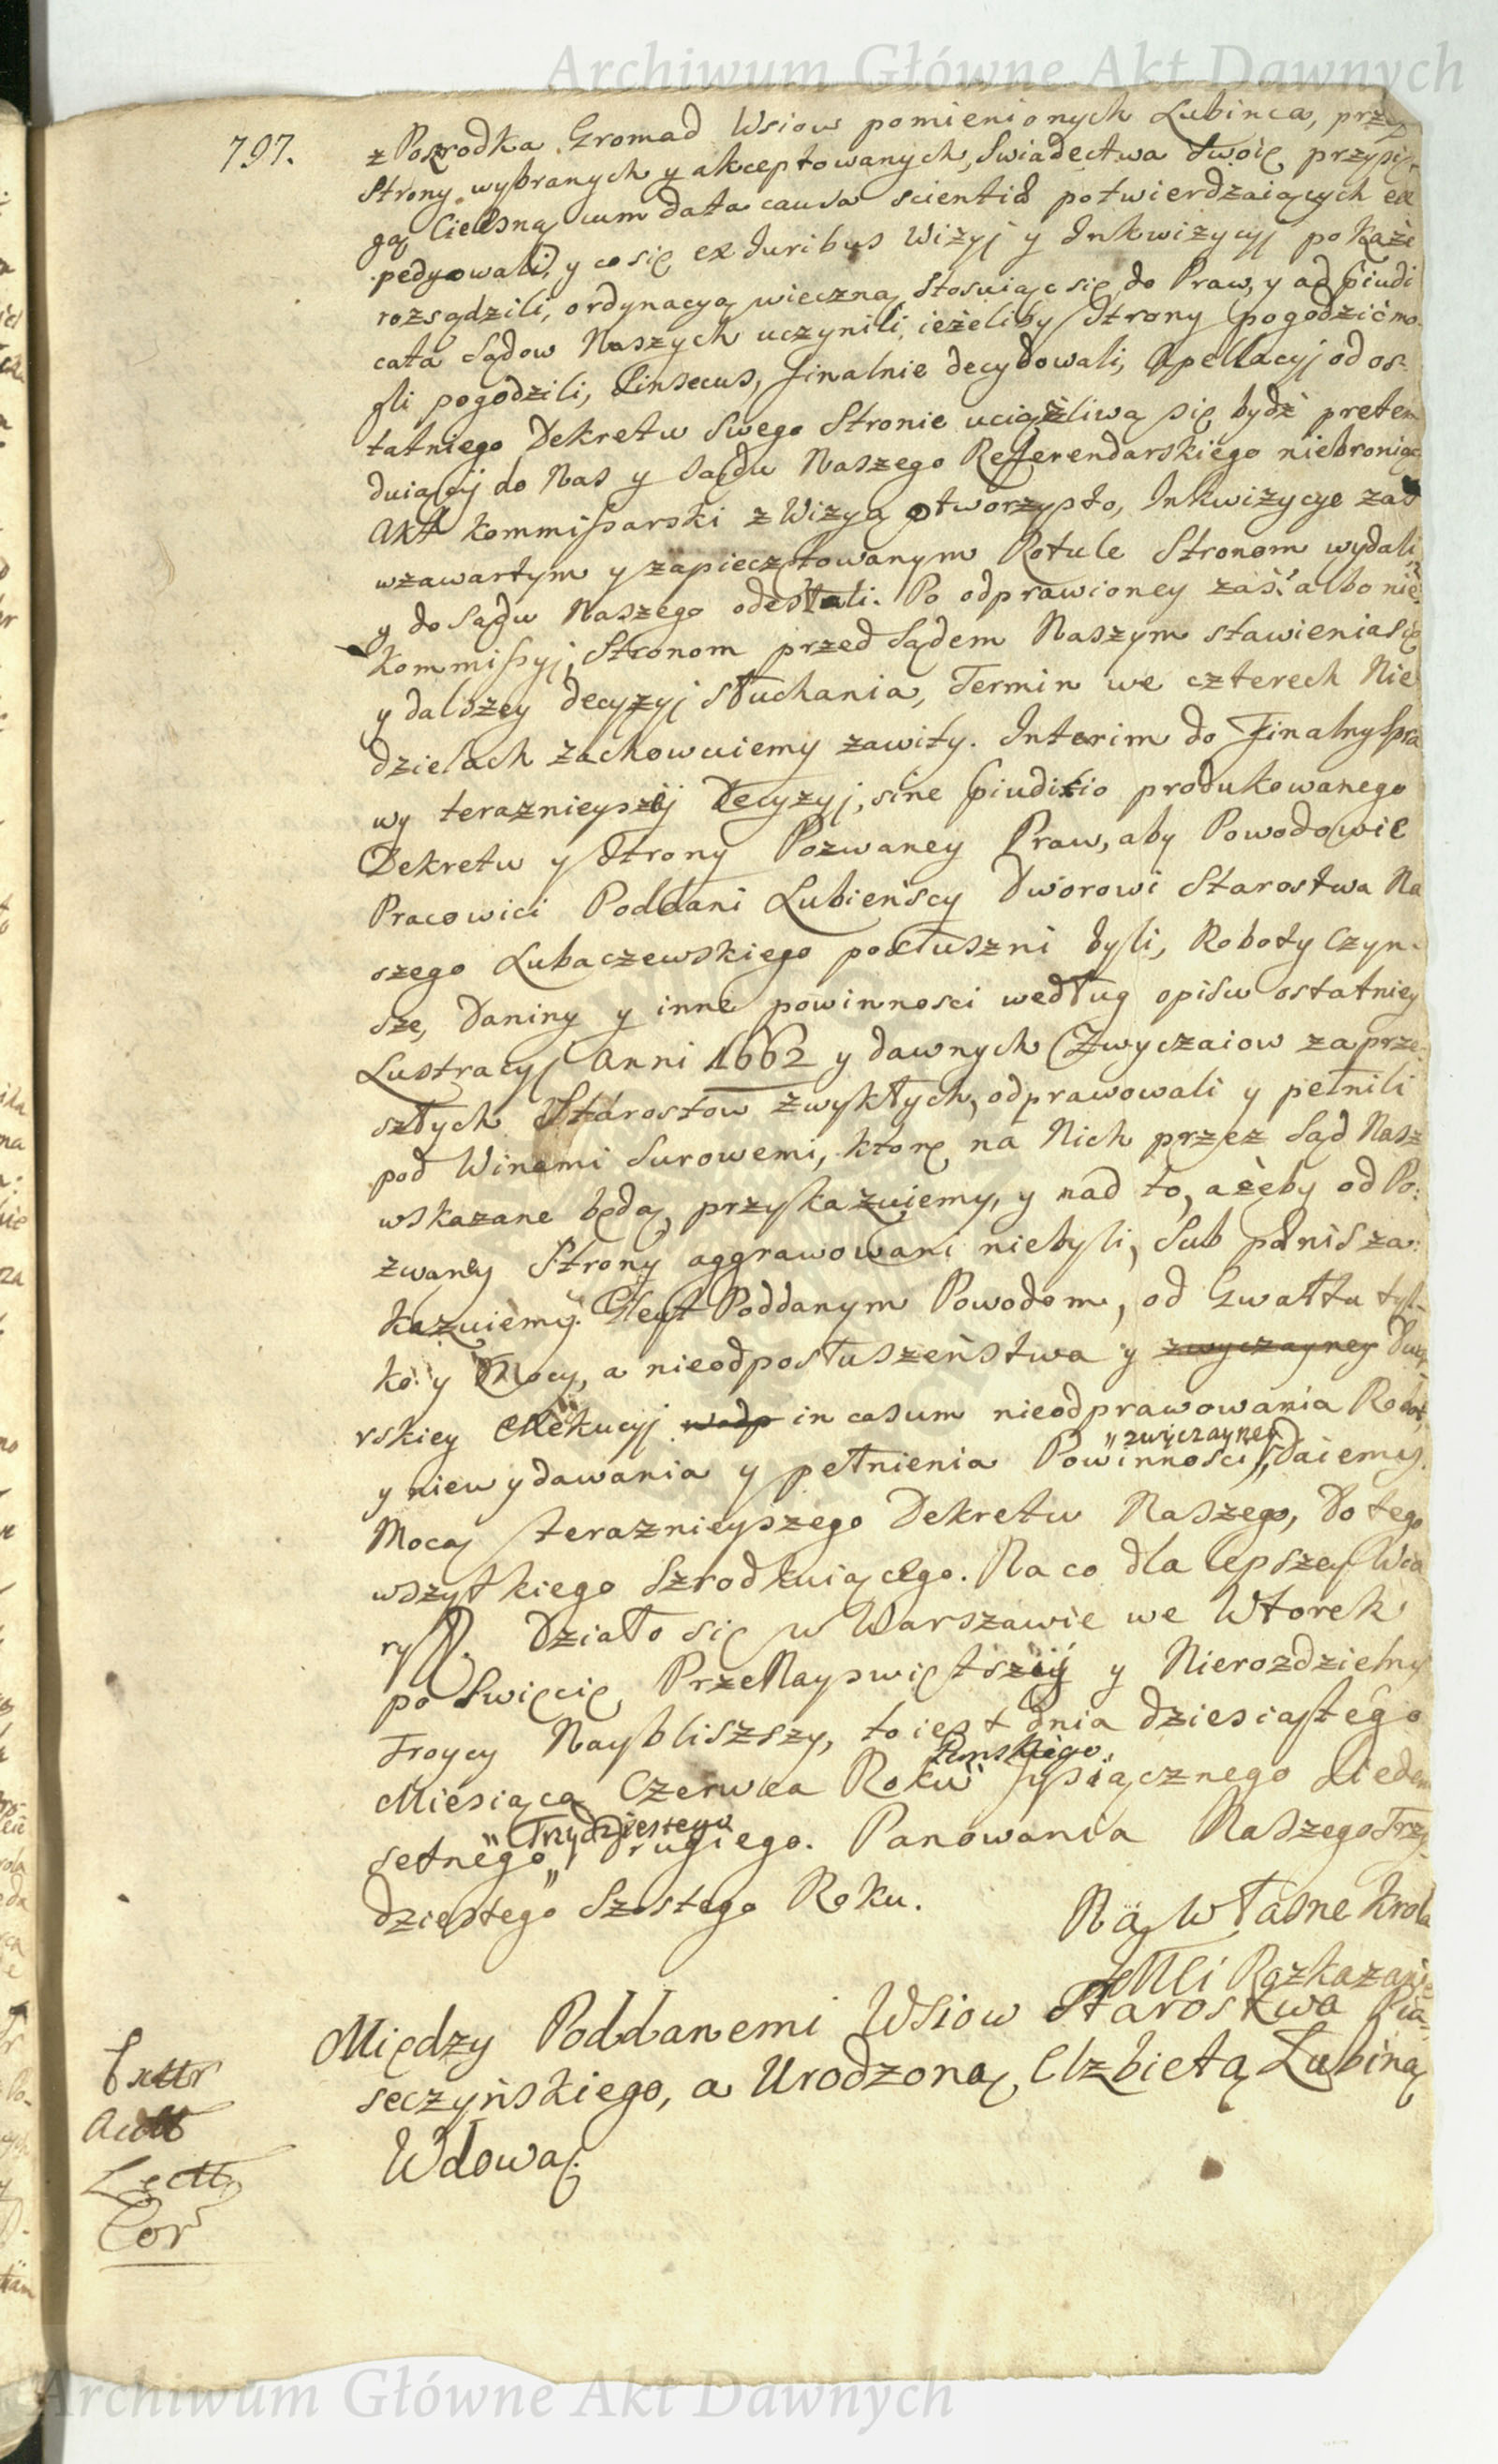 Archiwum Główne Akt Dawnych
797.
z Pośrodka Gromad Wsiow pomienionych Lubinca, przez
Strony wybranych y akceptowanych, Swiadectwa Swoie przysię-
gą Cielesną cum data causa scientiæ potwierdzaiących ex
pedyowali, y co się ex Juribus Wizyj y Inkwizycyj pokaże
rozsądzili, ordynacyą wieczną stosuiąc się do Praw, y ad Iudi
cata Sądow Naszych uczynili, ieżeliby Strony pogodzić mo-
gli pogodzili, Sinsecus, finalnie decydowali, Apellacyj od os-
tatniego Dekretu Swego Stronie uciążliwą się bydź preten
duiącyj do Nas y Sądu Naszego Referendarskiego niebroniąc
Akt Kommissarski z Wizyą otworzysto, Inkwizycye zaś
wzawartym y zapieczętowanym Rotule Stronom wydali
y do Sądu Naszego odesłali. Po odprawioney zaś albo nie
Kommissyj, Stronom przed Sądem Naszym stawienia się
y dalszey decyzyj słuchania, Termin we czterech Nie
dzielach zachowuiemy zawity. Interim do Finalny Spra
wy teraznieyszej Decyzyj, sine Iudicio produkowanego
Dekretu y Strony Pozwaney Praw, aby Powodowie
Pracowici Poddani Lubieńscy Dworowi Starostwa Na
szego Lubaczewskiego posłuszni byli, Roboty Czyn-
sze, Daniny y inne powinnosci według opisu ostatniey
Lustracyj Anni 1662 y dawnych Zwyczaiow zaprze-
szłych Starostow zwykłych, odprawowali y pełnili
pod Winami Surowemi, które na Nich przez Sąd Nasz
wskazane będą, przykazuiemy, y nad to, ażeby od Po:
zwany Strony aggrawowani niebyli, Sub pænis za:
kazuiemy. Gleyt Poddanym Powodom, od Gwałtu tyl-
ko y Mocy, a nieod posłuszeństwa y zwyczayney Dwo
rskiey Exekucyj in casum nieodprawowania Robot,
"zwyczayney
y niewydawania y pełnienia Powinności," daiemy.
Mocą teraznieyszego Dekretu Naszego, Do tego
wszytkiego Szrodkuiącego. Na co dla lepszey Wia
ry. Działo się w Warszawie we Wtorek
po Swięcie, PrzeNayswiętszey y Nierozdzielny
Troycy Naybliszszy, to iest dnia dziesiątego
Pańskiego
Miesiąca Czerwca Roku Tysiącznego Siedm
"Trzydziestego
setnego," Drugiego. Panowania Naszego Trzy
dziestego Szostego Roku.
Na Własne Krola
JeMci Rozkazanie
Między Poddanemi Wsiow Starostwa Pia-
seczyńskiego, a Urodzoną Elzbietą Łubiną
Wdową.
Extr
Lectt
Cor
Archiwum Główne Akt Dawnych